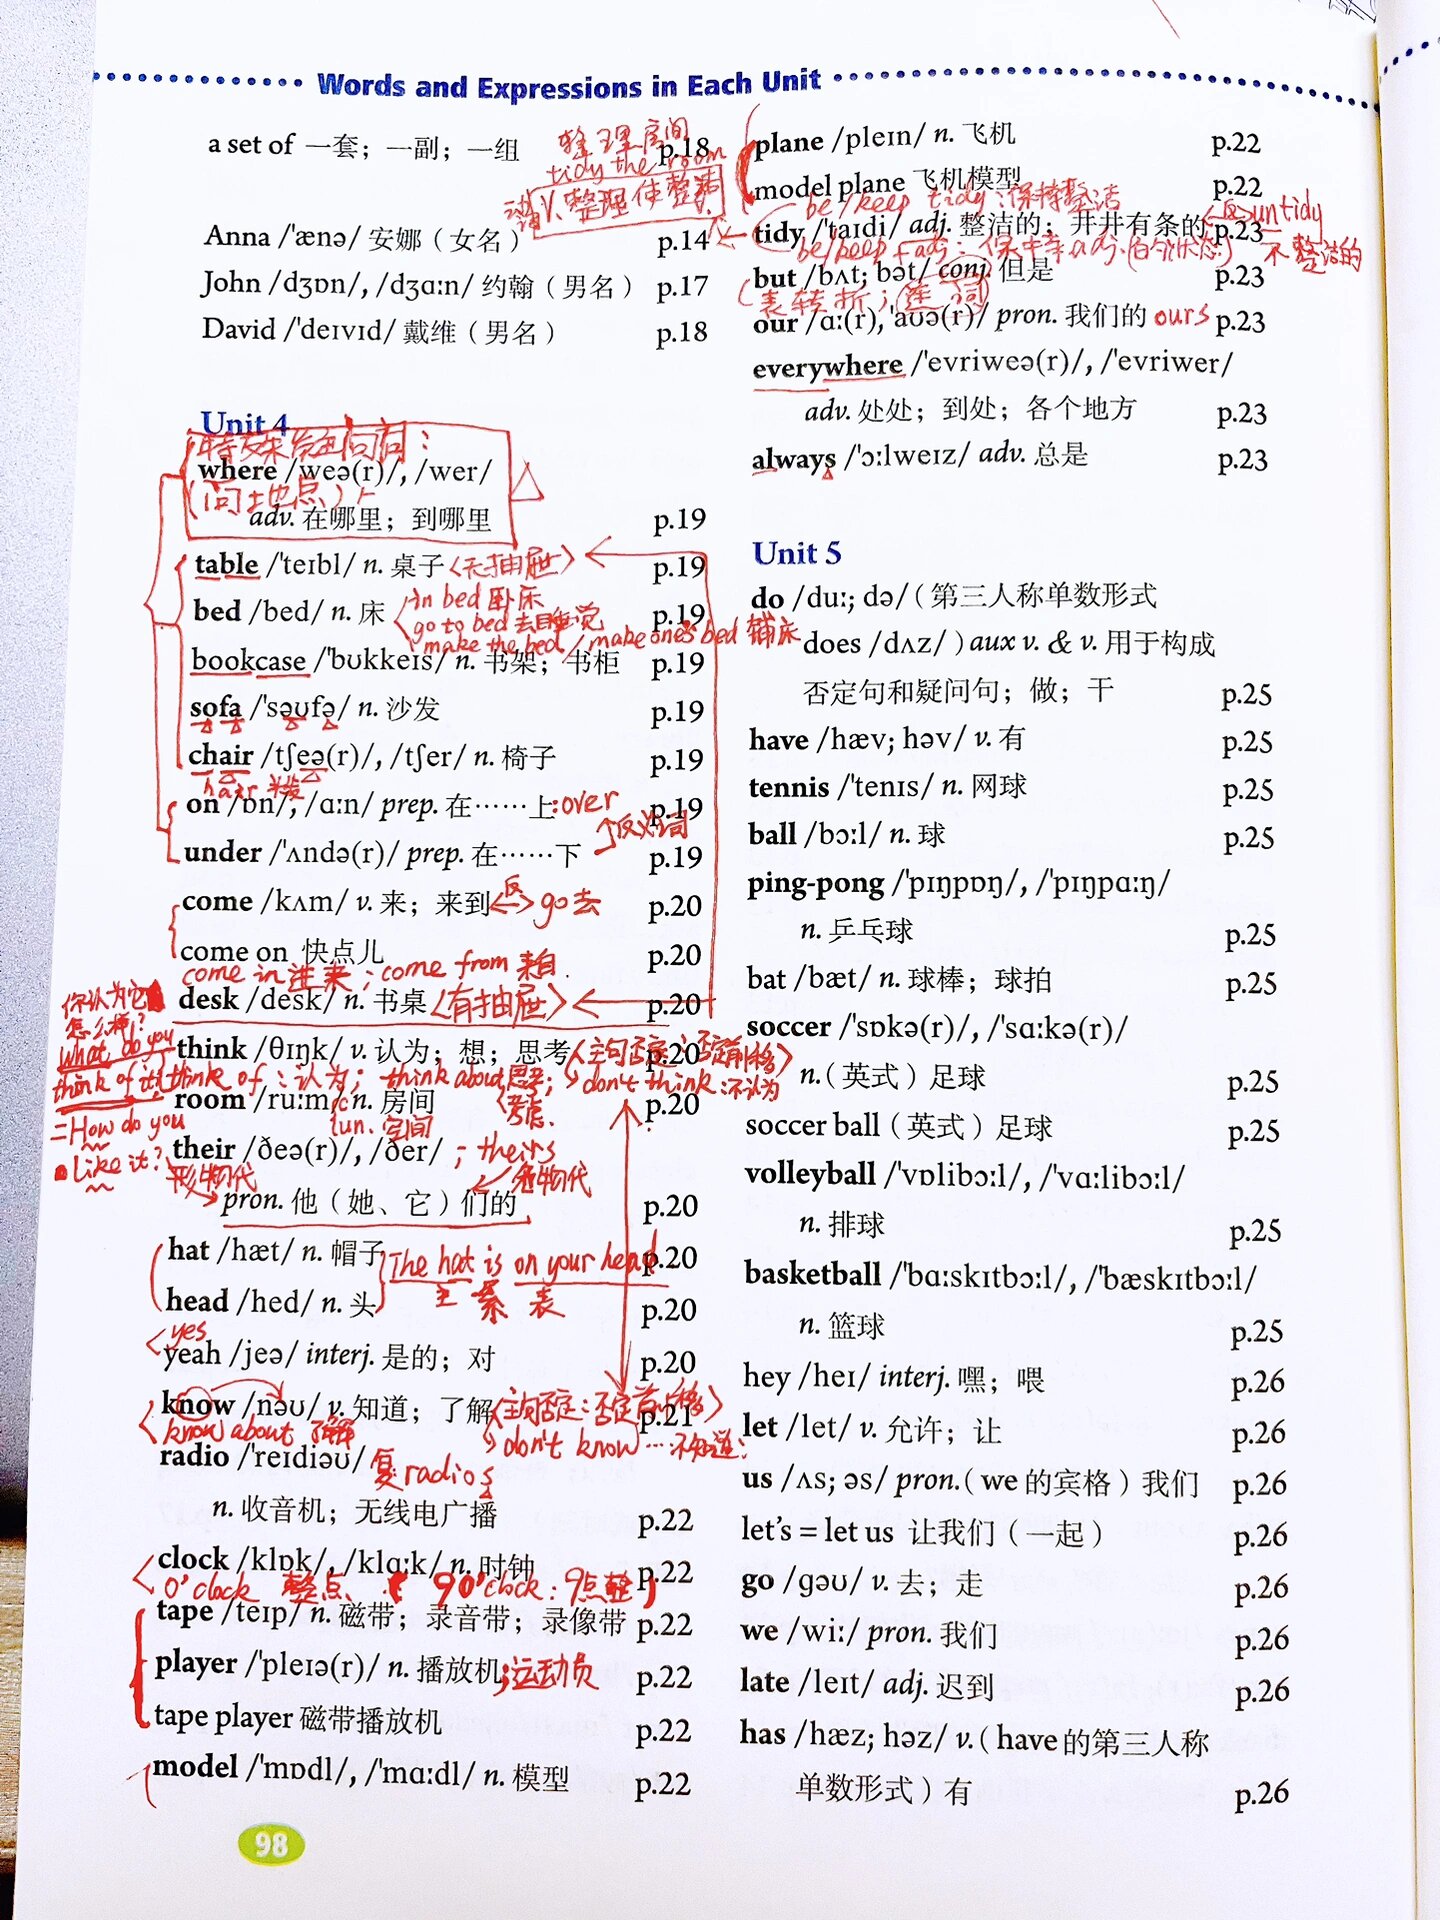 Words and Expressions in Each Unit
a set of 一套；一副；一组 p.18
整理房间
tidy the room
动词 V. 整理 使整洁
Anna /ˈænə/ 安娜（女名） p.14
John /dʒɒn/, /dʒɑːn/ 约翰（男名） p.17
David /ˈdeɪvɪd/ 戴维（男名） p.18
Unit 4
特殊疑问词：
where /weə(r)/, /wer/
（问地点）
adv. 在哪里；到哪里 p.19
table /ˈteɪbl/ n. 桌子〈无抽屉〉 p.19
bed /bed/ n. 床 p.19
in bed 卧床
go to bed 去睡觉
make the bed / make one's bed 铺床
bookcase /ˈbʊkkeɪs/ n. 书架；书柜 p.19
sofa /ˈsəʊfə/ n. 沙发 p.19
chair /tʃeə(r)/, /tʃer/ n. 椅子 p.19
hair 头发
on /ɒn/, /ɑːn/ prep. 在……上:over p.19
反义词
under /ˈʌndə(r)/ prep. 在……下 p.19
come /kʌm/ v. 来；来到 反 go 去 p.20
come on 快点儿 p.20
come in 进来；come from 来自.
desk /desk/ n. 书桌〈有抽屉〉 p.20
你认为它
怎么样?
what do you
think of it
=How do you
like it?
think /θɪŋk/ v. 认为；想；思考 p.20
〈主句否定：否定前移〉
don't think:不认为
think of：认为；think about 思考；
考虑.
room /ruːm/ n. 房间 p.20
un. 空间
their /ðeə(r)/, /ðer/ ；theirs
形物代
名物代
pron. 他（她、它）们的 p.20
hat /hæt/ n. 帽子 p.20
The hat is on your head
主 系 表
head /hed/ n. 头 p.20
yes
yeah /jeə/ interj. 是的；对 p.20
know /nəʊ/ v. 知道；了解 p.21
〈主句否定：否定前移〉
know about 了解
don't know …不知道：
radio /ˈreɪdiəʊ/ 复 radios
n. 收音机；无线电广播 p.22
clock /klɒk/, /klɑːk/ n. 时钟 p.22
o'clock 整点 9 o'clock：9点整
tape /teɪp/ n. 磁带；录音带；录像带 p.22
player /ˈpleɪə(r)/ n. 播放机;运动员 p.22
tape player 磁带播放机 p.22
model /ˈmɒdl/, /ˈmɑːdl/ n. 模型 p.22
plane /pleɪn/ n. 飞机 p.22
model plane 飞机模型 p.22
be/keep tidy：保持整洁
tidy /ˈtaɪdi/ adj. 整洁的；井井有条的 p.23
反 untidy
不整洁的
be/keep + adj：保持 adj. 的(状态)
but /bʌt; bət/ conj. 但是 p.23
（表转折；连词）
our /ɑː(r), ˈaʊə(r)/ pron. 我们的 ours p.23
everywhere /ˈevriweə(r)/, /ˈevriwer/
adv. 处处；到处；各个地方 p.23
always /ˈɔːlweɪz/ adv. 总是 p.23
Unit 5
do /duː; də/（第三人称单数形式
does /dʌz/ ）aux v. & v. 用于构成
否定句和疑问句；做；干 p.25
have /hæv; həv/ v. 有 p.25
tennis /ˈtenɪs/ n. 网球 p.25
ball /bɔːl/ n. 球 p.25
ping-pong /ˈpɪŋpɒŋ/, /ˈpɪŋpɑːŋ/
n. 乒乓球 p.25
bat /bæt/ n. 球棒；球拍 p.25
soccer /ˈsɒkə(r)/, /ˈsɑːkə(r)/
n.（英式）足球 p.25
soccer ball（英式）足球 p.25
volleyball /ˈvɒlibɔːl/, /ˈvɑːlibɔːl/
n. 排球 p.25
basketball /ˈbɑːskɪtbɔːl/, /ˈbæskɪtbɔːl/
n. 篮球 p.25
hey /heɪ/ interj. 嘿；喂 p.26
let /let/ v. 允许；让 p.26
us /ʌs; əs/ pron.（we 的宾格）我们 p.26
let's = let us 让我们（一起） p.26
go /ɡəʊ/ v. 去；走 p.26
we /wiː/ pron. 我们 p.26
late /leɪt/ adj. 迟到 p.26
has /hæz; həz/ v.（have 的第三人称
单数形式）有 p.26
98